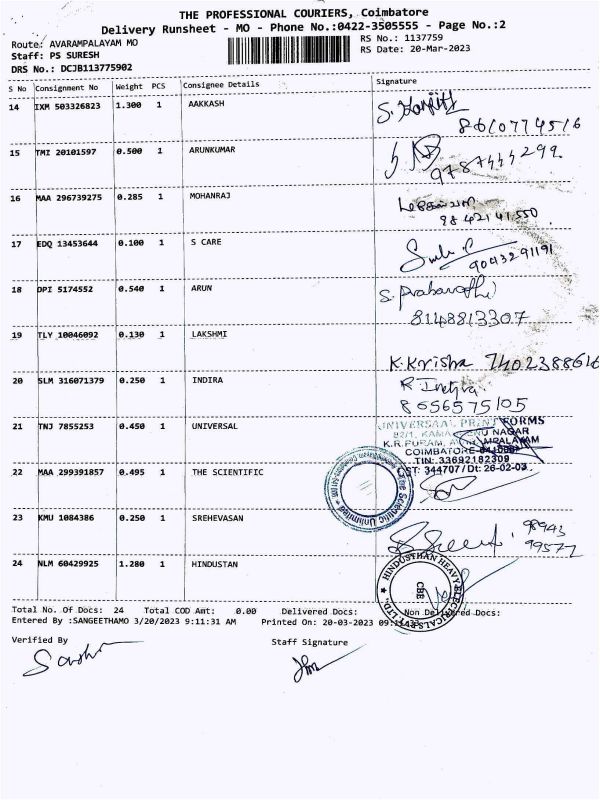 THE PROFESSIONAL COURIERS, Coimbatore
Delivery Runsheet - MO - Phone No.:0422-3505555 - Page No.:2
Route: AVARAMPALAYAM MO
RS No.: 1137759
Staff: PS SURESH
RS Date: 20-Mar-2023
DRS No.: DCJB113775902
S No Consignment No Weight PCS Consignee Details Signature
14 IXM 503326823 1.300 1 AAKKASH
8610774516
15 TMI 20101597 0.500 1 ARUNKUMAR
9787444299
16 MAA 296739275 0.285 1 MOHANRAJ
9842141550
17 EDQ 13453644 0.100 1 S CARE
9043291191
18 DPI 5174552 0.540 1 ARUN S. Prabavathi
8148813307
19 TLY 10046092 0.130 1 LAKSHMI
K.Krisha 7402388616
20 SLM 316071379 0.250 1 INDIRA
R. Indira
8656575105
21 TNJ 7855253 0.450 1 UNIVERSAL
UNIVERSAAL PRINT FORMS
NAGAR
K.R.PURAM,
COIMBATORE-641006
TIN: 33692182309
CST: 344707/Dt: 26-02-03
22 MAA 299391857 0.495 1 THE SCIENTIFIC
The Scientific Unlimited
23 KMU 1084386 0.250 1 SREHEVASAN
98943
99577
24 NLM 60429925 1.280 1 HINDUSTAN
HINDUSTHAN HEAVY ELECTRICALS PVT LTD.,
CBE
Total No. Of Docs: 24 Total COD Amt: 0.00 Delivered Docs: Non Delivered Docs:
Entered By :SANGEETHAMO 3/20/2023 9:11:31 AM Printed On: 20-03-2023 09:11:33
Verified By Staff Signature